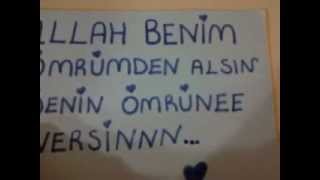 ALLAH BENİM
ÖMRÜMDEN ALSIN
SENİN ÖMRÜNEE
VERSİNNN...